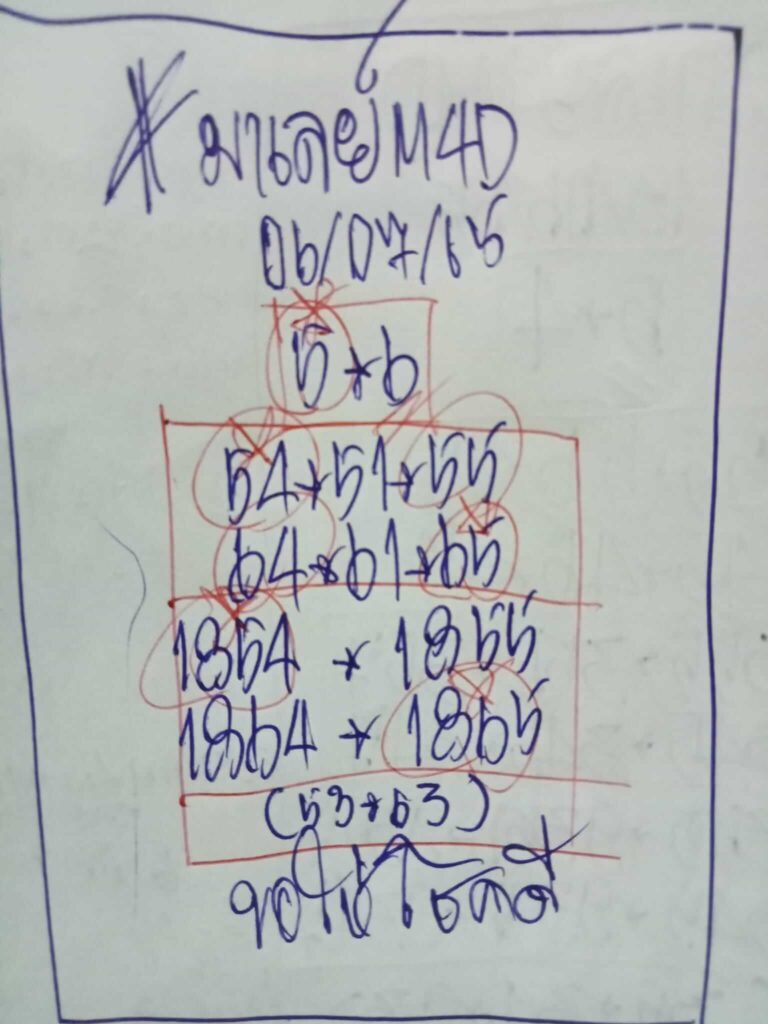 * มาเลย์ M4D
06/07/65
5*6
54*51*55
64*61*65
1854 * 1855
1864 * 1865
(53*63)
ขอให้โชคดี